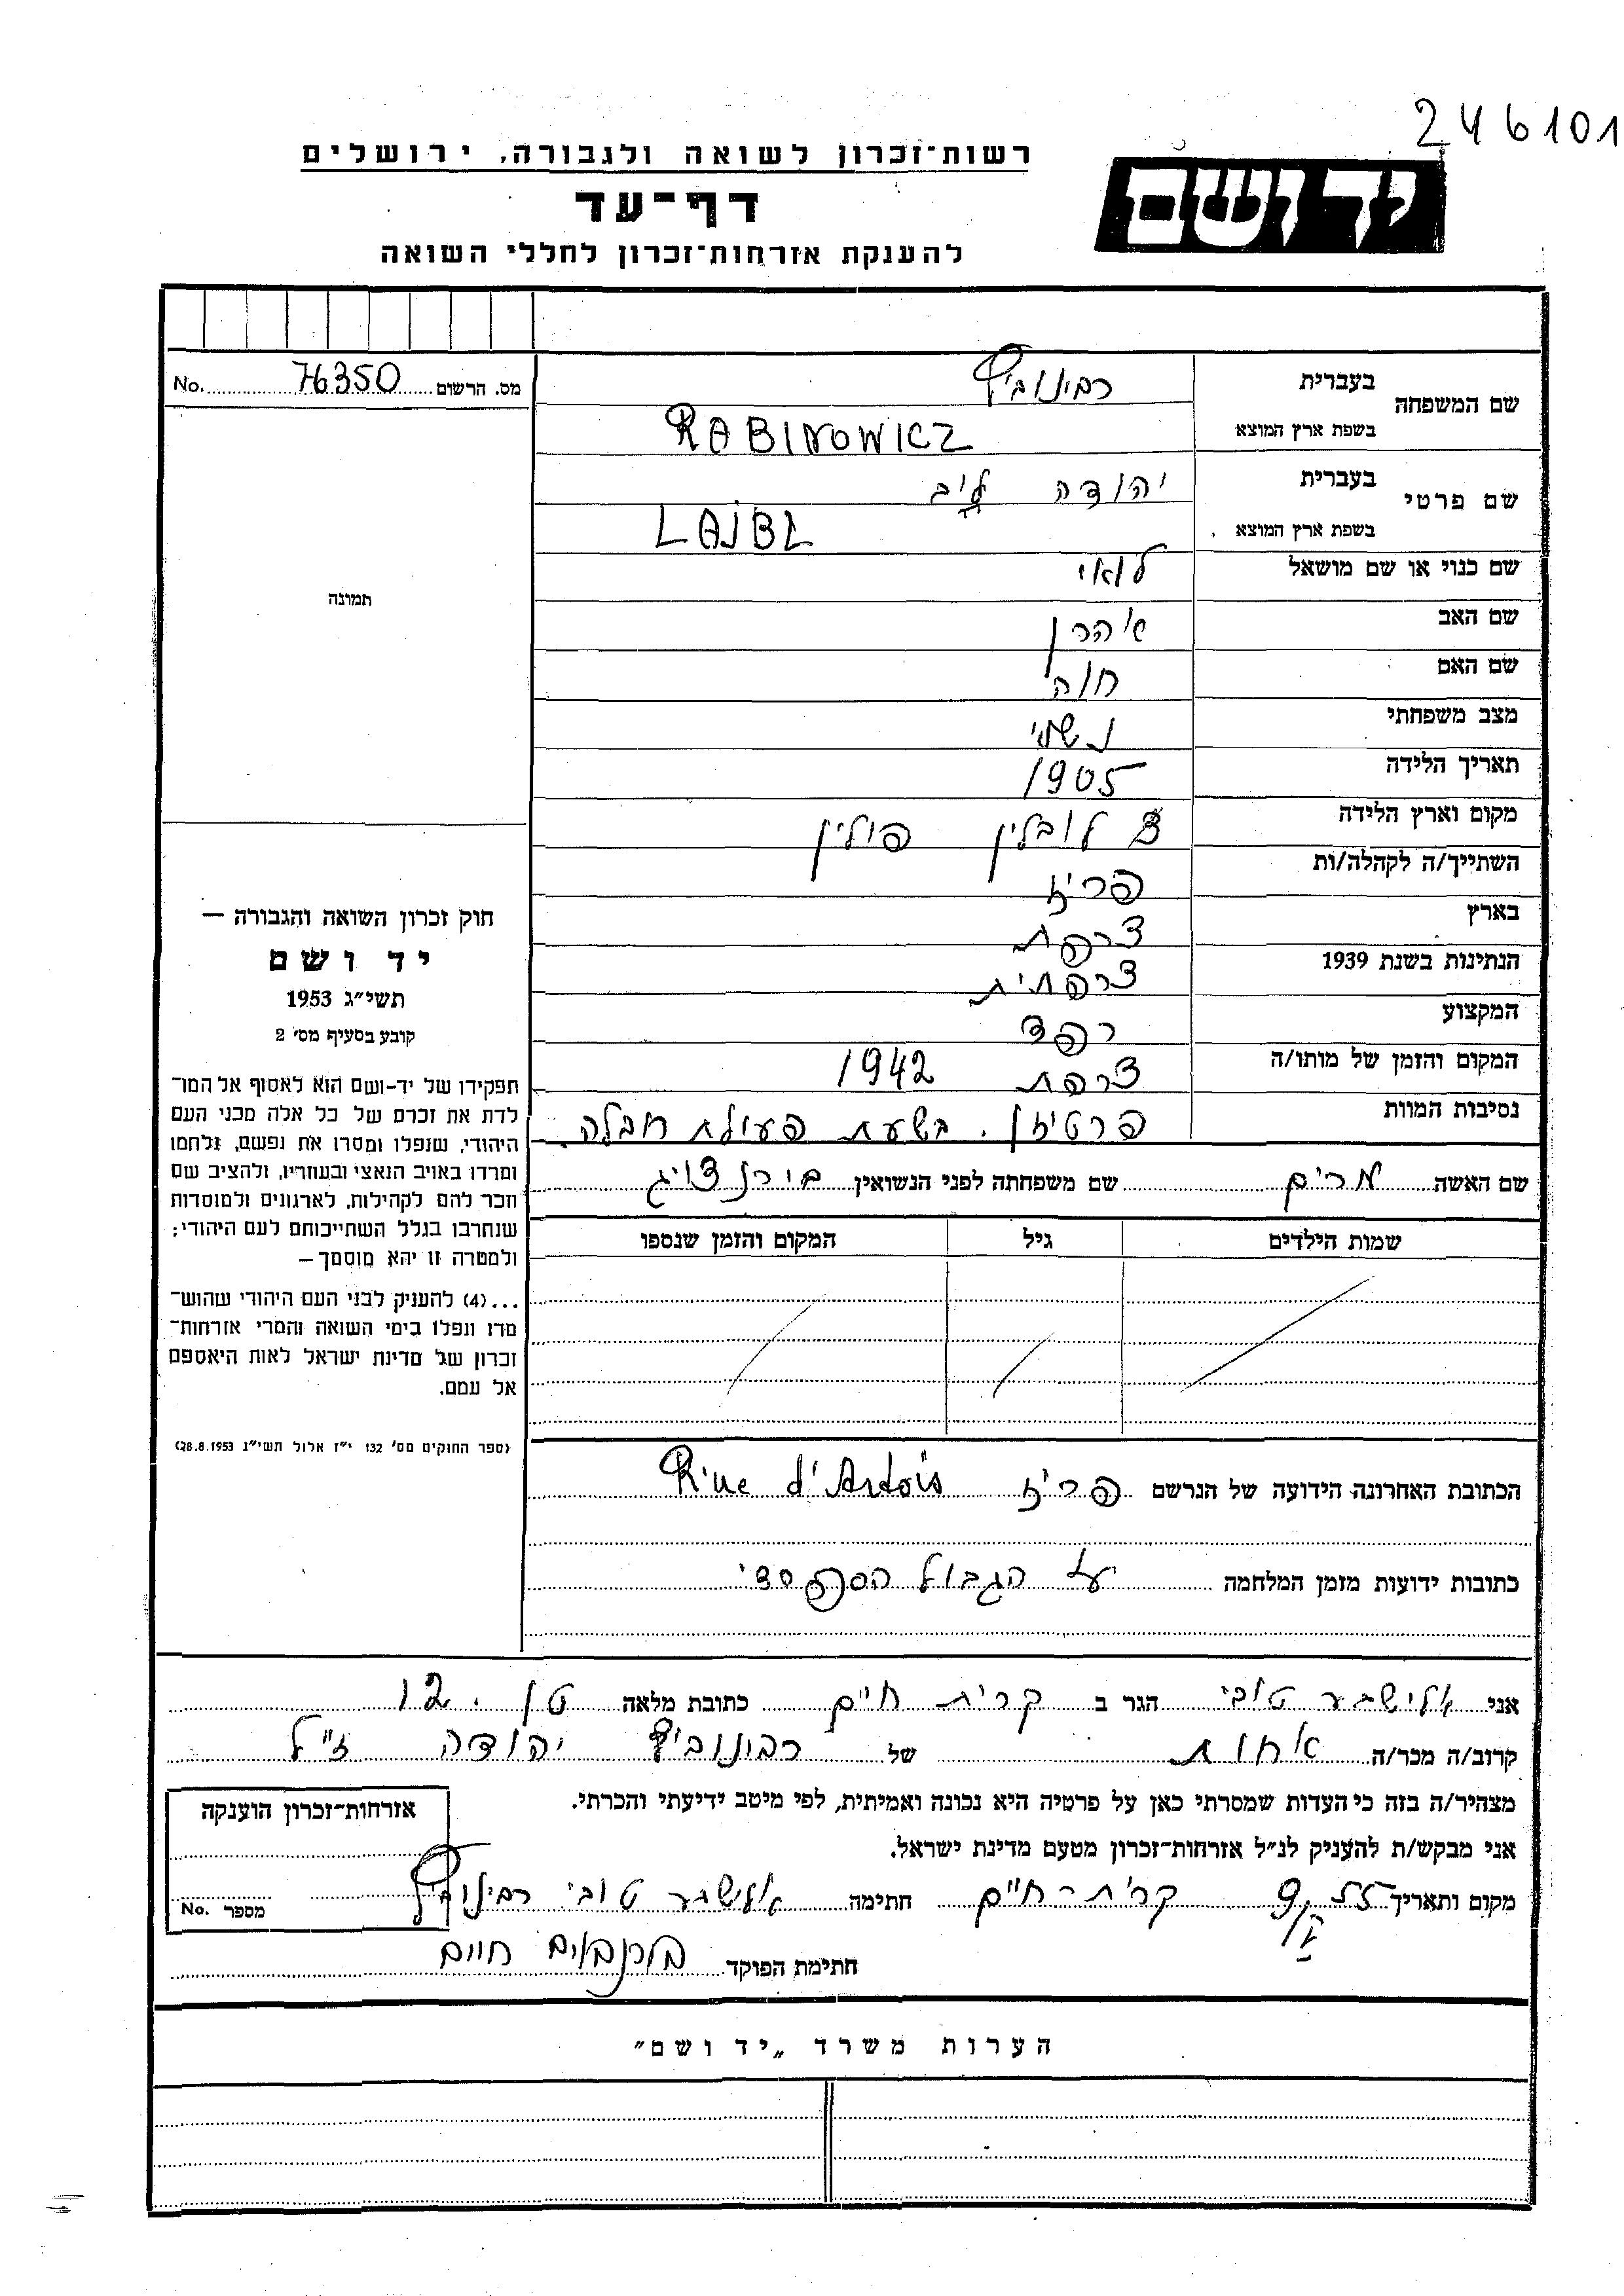 246101
יד ושם
רשות־זכרון לשואה ולגבורה, ירושלים
דף־עד
להענקת אזרחות־זכרון לחללי השואה
מס. הרשום 76350 No.
שם המשפחה
בעברית רבינוביץ
בשפת ארץ המוצא RABINOWICZ
שם פרטי
בעברית יהודה ליב
בשפת ארץ המוצא LAJBL
שם כנוי או שם מושאל לואי
שם האב אהרן
שם האם חוה
מצב משפחתי נשוי
תאריך הלידה 1905
מקום וארץ הלידה לובלין פולין
השתייך/ה לקהלה/ות פריז
בארץ צרפת
הנתינות בשנת 1939 צרפתית
המקצוע רפד
המקום והזמן של מותו/ה צרפת 1942
נסיבות המוות פרטיזן. בשעת פעולת חבלה.
שם האשה מרים שם משפחתה לפני הנשואין בורנצויג
שמות הילדים גיל המקום והזמן שנספו
הכתובת האחרונה הידועה של הנרשם פריז Rue d'Artois
כתובות ידועות מזמן המלחמה על הגבול הספרדי
תמונה
חוק זכרון השואה והגבורה —
יד ושם
תשי״ג 1953
קובע בסעיף מס׳ 2
תפקידו של יד-ושם הוא לאסוף אל המו־
לדת את זכרם של כל אלה מבני העם
היהודי, שנפלו ומסרו את נפשם, נלחמו
ומרדו באויב הנאצי ובעוזריו, ולהציב שם
וזכר להם לקהילות, לארגונים ולמוסדות
שנחרבו בגלל השתייכותם לעם היהודי;
ולמטרה זו יהא מוסמך—
...(4) להעניק לבני העם היהודי שהוש־
מדו ונפלו בימי השואה והמרי אזרחות־
זכרון של מדינת ישראל לאות היאספם
אל עמם.
(ספר החוקים מס׳ 132 י״ז אלול תשי״ג 28.8.1953)
אני אלישבע טובי הגר ב קרית חיים כתובת מלאה טן. 12
קרוב/ה מכר/ה אחות של רבינוביץ יהודה ז״ל
מצהיר/ה בזה כי העדות שמסרתי כאן על פרטיה היא נכונה ואמיתית, לפי מיטב ידיעתי והכרתי.
אני מבקש/ת להעניק לנ״ל אזרחות־זכרון מטעם מדינת ישראל.
מקום ותאריך קרית-חיים חתימה אלישבע טובי רבינוביץ
חתימת הפוקד חיים
אזרחות־זכרון הוענקה
מספר No.
הערות משרד „יד ושם״